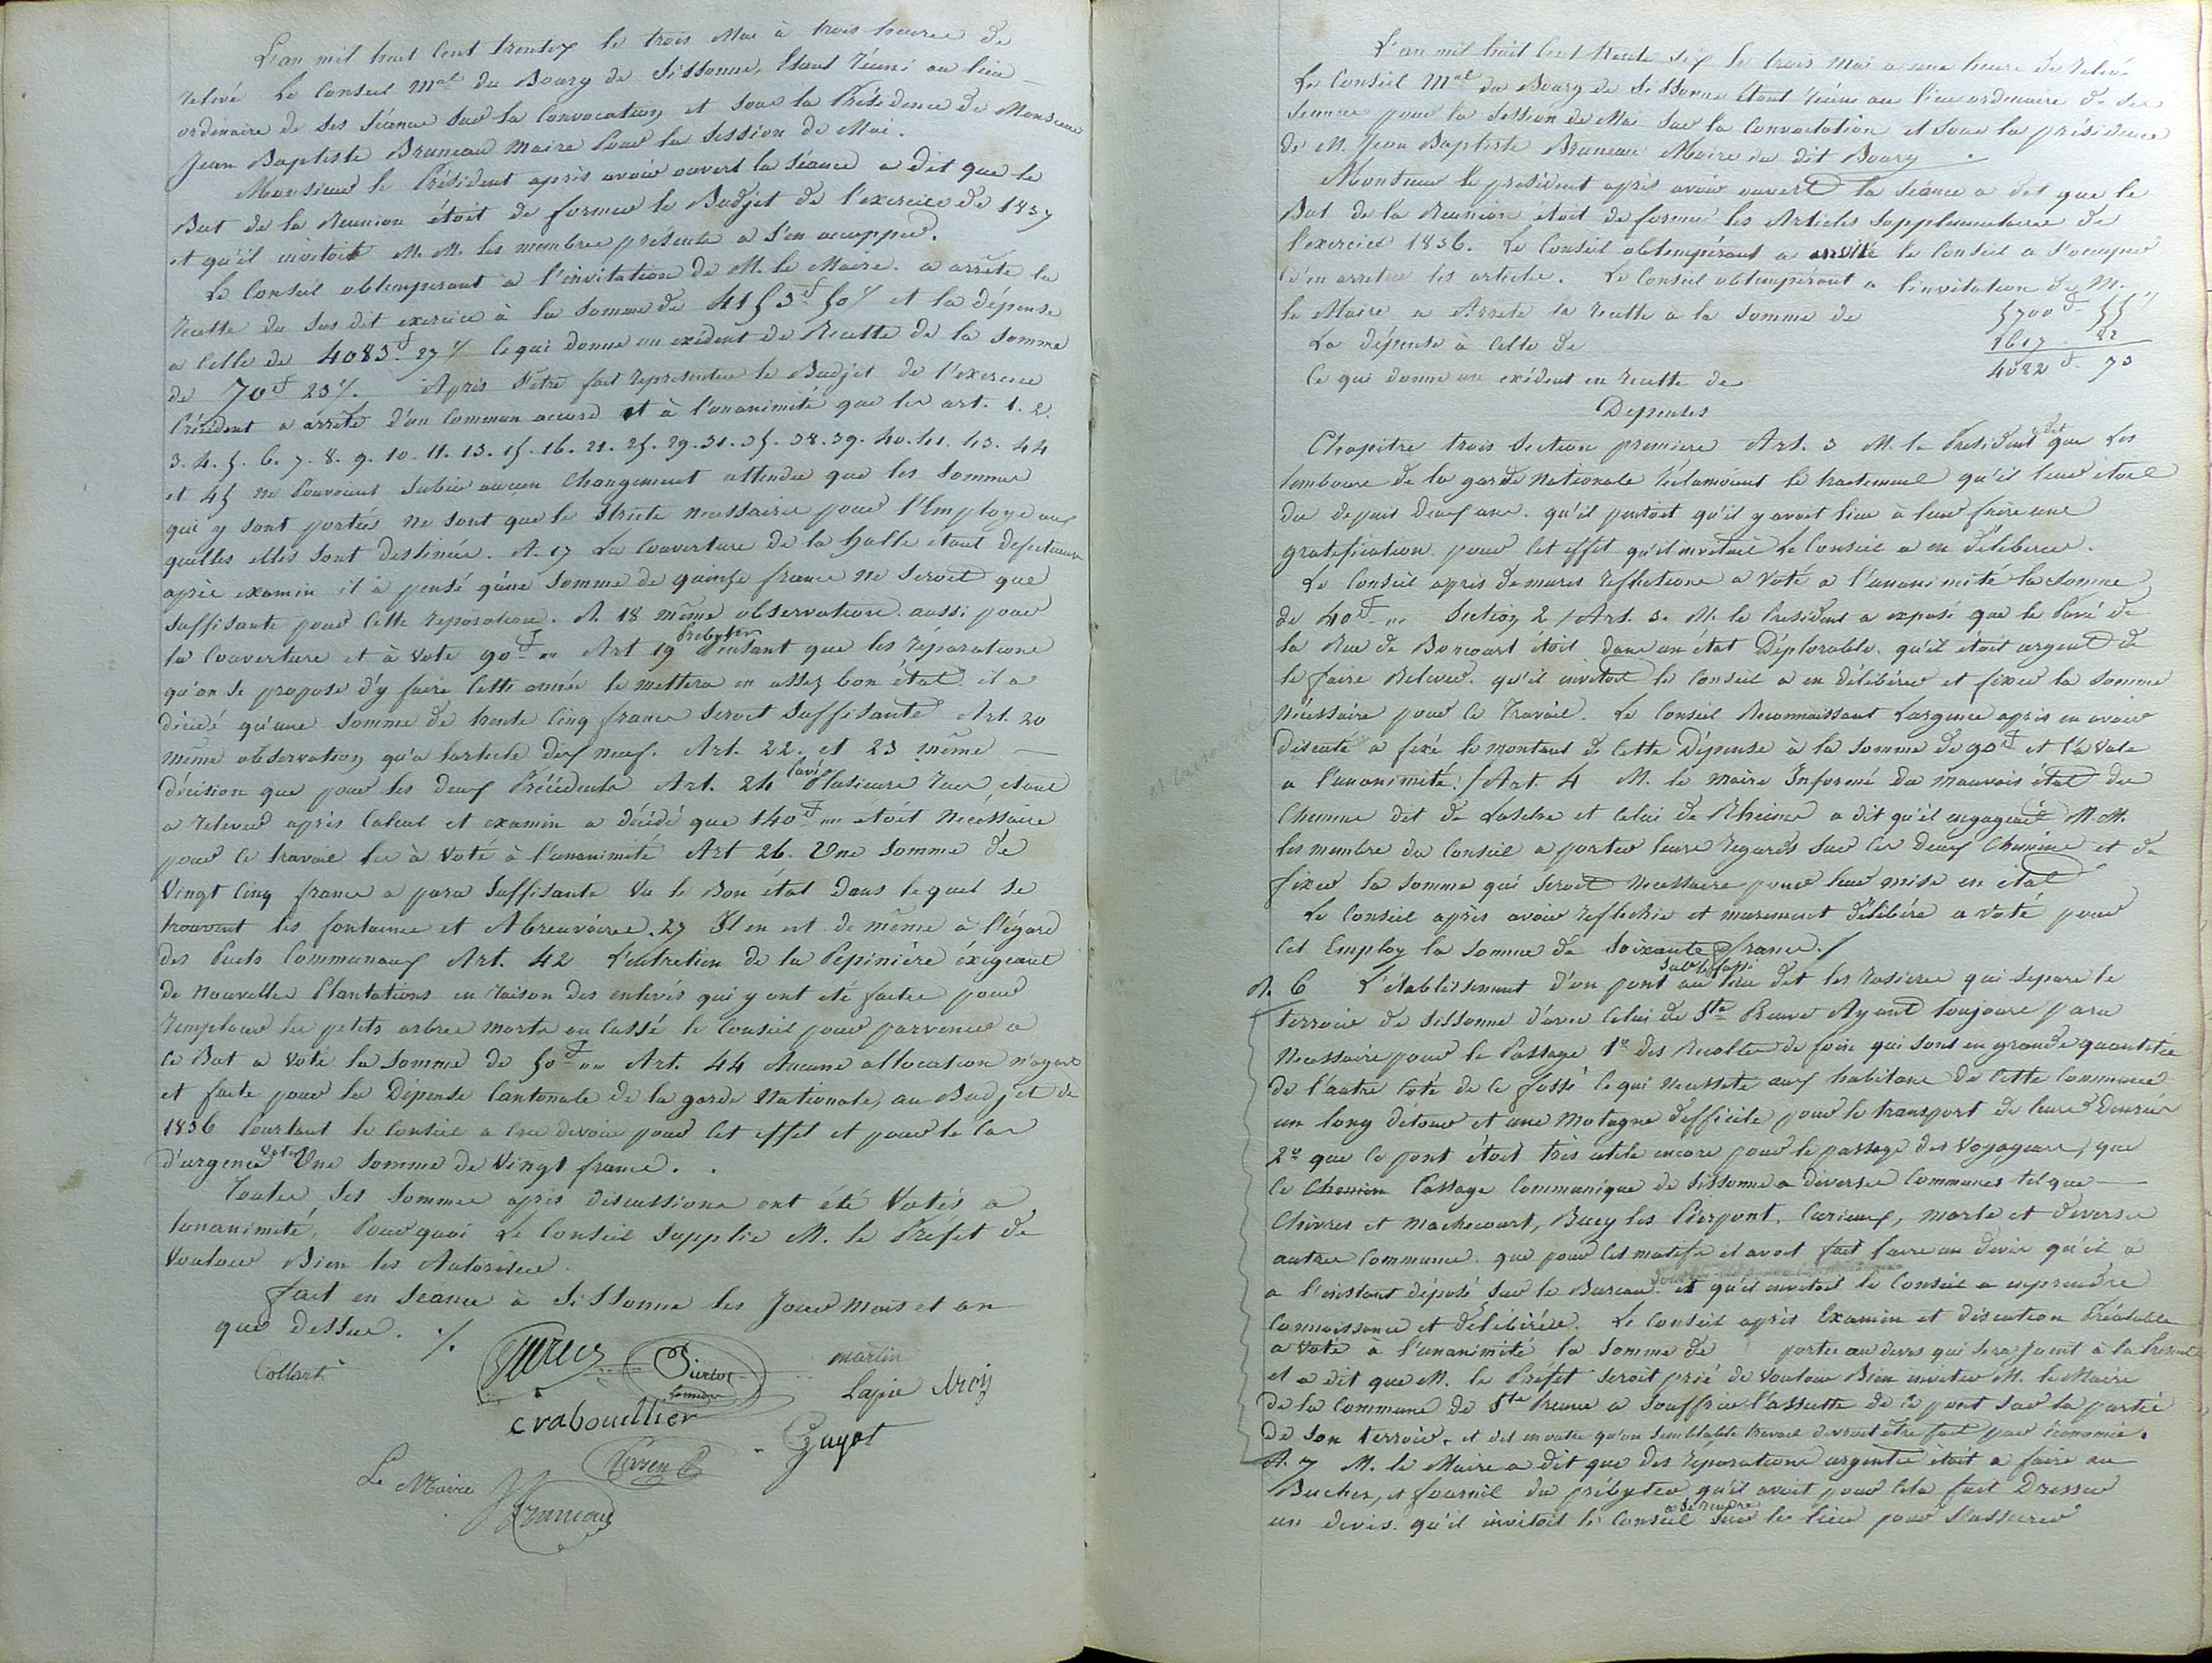 L'an mil huit Cent trentesix le trois Mai à trois heures de
relevé Le Conseil M.al du Bourg de Sissonne, Etant réuni au lieu
ordinaire de ses séances sur la Convocation et sous la Présidence de Monsieur
Jean Baptiste Bruneau Maire Pour la Session de Mai.
Monsieur le Président après avoir ouvert la séance a dit que le
But de la Reunion étoit de former le Budjet de l'exercice de 1837
et qu'il invitoit M. M. les membres présents a s'en occupper.
Le Conseil obtemperant a l'invitation de M. le Maire. a arrêté la
recette du sus dit exercice à la Somme de 4153f 50c et la dépense
a Celle de 4083f 27c Ce qui donne un exédent de Recette de la Somme
de 70f 23c. Après S'être fait representer le Budjet de l'exercice
Précédent a arrêté d'un Commun accord et à l'unanimité que les art. 1. 2.
3. 4. 5. 6. 7. 8. 9. 10. 11. 13. 15. 16. 21. 25. 29. 31. 35. 38. 39. 40. 41. 43. 44
et 45 ne Pouvoient Subir aucun Changement attendu que les Sommes
qui y sont portées ne sont que le Stricte necessaire pour l'Employe aux
quelles elles sont destinées. A. 17 La Couverture de la halle étant defectueuse
après examin il a pensé qu'une Somme de quinze francs ne Seroit que
Suffisante pour Cette reparation. A. 18 même observation aussi pour
la Couverture et à voté 90f " Art 19 Presbyter Pensant que les réparations
qu'on se propose d'y faire Cette année le mettera en assez bon état. il a
décidé qu'une Somme de trente Cinq francs Seroit Suffisante Art. 20
même observation qu'a l'article dix neuf. Art. 22. et 23 même
décision que pour les deux Précédents Art. 24 Pavés Plusieurs rues etant
a relever après Calcul et examin a décidé que 140f " étoit Nécéssaire
pour Ce travail les à Voté à l'unanimité Art 26. Une Somme de
Vingt Cinq francs a paru Suffisante Vu le Bon état dans lequel se
trouvent les fontaines et Abreuvoires. 27 Il en est de même à l'égard
des Puits Communaux Art. 42 L'entretien de la Pepinière éxigeant
de Nouvelles Plantations en raison des enlevés qui y ont été faites pour
remplacer les petits arbres morts ou Cassé le Conseil pour parvenir a
Ce But a voté la Somme de 50f " Art. 44 Aucune allocation n'ayant
et faite pour la Dépense Cantonale de la garde Nationale, au Budjet de
1836 Pourtant le Conseil a Cru devoir pour Cet effet et pour le Cas
d'urgence Voter Une Somme de Vingt francs.
Toutes Ses Sommes après discussions ont été Votés a
l'unanimité, Pour quoi Le Conseil Supplie M. le Préfet de
Vouloir Bien les Autoriser.
Fait en Séance à Sissonne les Jour Mois et an
que dessus. ./.
Collart
Pierlot
martin
Lapie
crabouillier
Guyot
Le Maire
Bruneau
L'an mil huit Cent trente six le trois mai a une heure de relevé
Le Conseil M.al du Bourg de Sissonne Etant réuni au lieu ordinaire de ses
Seances pour la Session de Mai sur la Convocation et sous la présidence
de M. Jean Baptiste Bruneau Maire du dit Bourg.
Monsieur le président après avoir ouvert la séance a dit que le
But de la Reunion étoit de former les Articles Supplementaires de
l'exercice 1836. Le Conseil obtempérant a arrêté le Conseil a s'occuper
d'en arreter les articles. Le Conseil obtempérant a l'invitation de M.
le Maire a Arrete la recette a la Somme de 5700f 55c
La dépense à Celle de 1617 . 82
Ce qui donne un exédent en recette de 4082f 73
Depenses
Chapitre trois Section premiere Art. 3 M. le President a dit que Les
tambours de la garde Nationale réclamoient le traitement qu'il leur étoit
du depuis deux ans. qu'il pensoit qu'il y avoit lieu à leur faire une
gratification pour Cet effet qu'il invitoit Le Conseil a en déliberer.
Le Conseil après de mures refflections a Voté a l'unanimité la Somme
de 40f " Section 2 / Art. 3. M. le President a exposé que le Pavé de
la Rue de Boncourt étoit dans un état Déplorable. qu'il étoit urgent de
le faire Relever. qu'il invitoit le Conseil a en délibérer et fixer la Somme
Nécéssaire pour Ce Travail. Le Conseil Reconnaissant L'urgence après en avoir
discuté a fixé le montant de Cette Dépense à la Somme de 90f et l'a Voté
a l'unanimité. / Art. 4 M. le Maire Informé du mauvais état du
Chemin dit de et Celui de Rheims a dit qu'il engageait M. M.
les membre du Conseil a porter leurs regards Sur Ces deux Chemins et de
fixer la Somme qui Seroit Necessaire pour leur mise en état
Le Conseil après avoir refflechie et murement délibéré a voté pour
Cet Employ la Somme de Soixante francs. /
A. 6 L'établissement d'un pont sur le fossé au lieu dit les rosieres qui Separe le
terroir de Sissonne d'avec Celui de Ste Preuve Ayant toujours paru
Necessaire pour le Passage 1° des Recoltes de foin qui sont en grande quantitée
de l'autre Coté de Ce fossé Ce qui necessite aux habitans de Cette Commune
un long détour et une Motagne difficile pour le transport de leurs Denrées
2° que Ce pont étoit très utile encore pour le passage des Voyageurs, que
le Chemin Passage Communique de Sissonne a diverses Communes tel que
Chivres et Machecourt, Bucy les Pierpont, Curieux, Marle et diverses
autres Communes. que pour Ces motifs il avoit fait faire un devis qu'il a
a l'instant déposé sur le Bureau. et qu'il invitoit le Conseil a en prendre
Connoissance et délibérér. Le Conseil après Examin et discution Préalable
a Voté à l'unanimité la Somme de portée au devis qui sera joint à la Présente
et a dit que M. le Préfet Seroit prié de Vouloir Bien inviter M. le Maire
de la Commune de Ste Preuve a Souffrir l'assiette de Ce pont Sur la partie
de Son terroir. et dit en outre qu'un Semblable travail devroit être fait par économie.
A. 7 M. le Maire a dit que des réparations urgentes étoit a faire au
Bucher, et fournil du présbyter qu'il avoit pour Cela fait Dresser
un devis. qu'il invitoit le Conseil a se rendre sur les lieux pour S'assurer